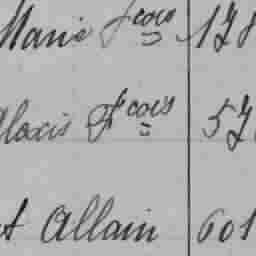 Marie Fcois 178
Alexis Fcois 57
t Allain 601